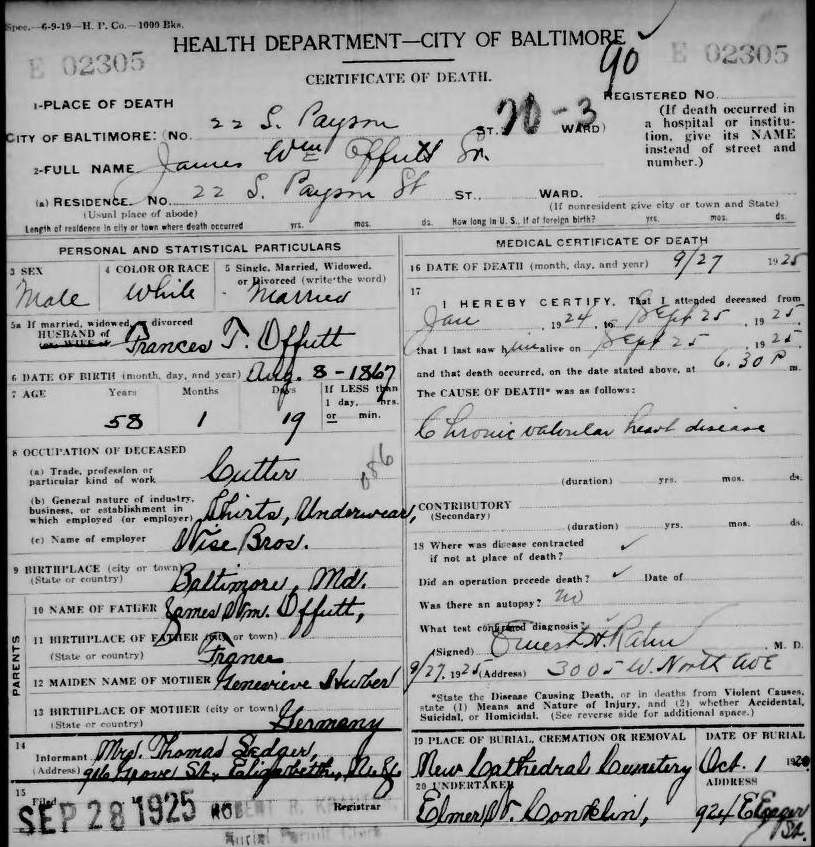 Spec.—6-9-19—H. P. Co.—1000 Bks.
HEALTH DEPARTMENT—CITY OF BALTIMORE
E 02305
90
E 02305
CERTIFICATE OF DEATH.
1-PLACE OF DEATH
REGISTERED NO.
CITY OF BALTIMORE: (NO. 22 S. Payson ST. 20-3 WARD)
(If death occurred in a hospital or institution, give its NAME instead of street and number.)
2-FULL NAME James Wm Offutt Sr.
(a) RESIDENCE. NO. 22 S. Payson St ST., WARD.
(Usual place of abode)
(If nonresident give city or town and State)
Length of residence in city or town where death occurred yrs. mos. ds. How long in U. S., if of foreign birth? yrs. mos. ds.
PERSONAL AND STATISTICAL PARTICULARS
3 SEX
Male
4 COLOR OR RACE
White
5 Single, Married, Widowed, or Divorced (write the word)
Married
5a If married, widowed, or divorced
HUSBAND of
(or WIFE of
Frances T. Offutt
6 DATE OF BIRTH (month, day, and year) Aug. 8-1867
7 AGE Years Months Days If LESS than
1 day, hrs.
or min.
58 1 19
8 OCCUPATION OF DECEASED
(a) Trade, profession or particular kind of work Cutter
086
(b) General nature of industry, business, or establishment in which employed (or employer) Shirts, Underwear,
(c) Name of employer Wise Bros.
9 BIRTHPLACE (city or town)
(State or country) Baltimore, Md.
PARENTS
10 NAME OF FATHER James Wm. Offutt,
11 BIRTHPLACE OF FATHER (city or town)
(State or country) France
12 MAIDEN NAME OF MOTHER Genevieve Huber
13 BIRTHPLACE OF MOTHER (city or town)
(State or country) Germany
14
Informant Mrs. Thomas Ledger,
(Address) 916 Grove St., Elizabeth, N.J.
15
Filed SEP 28 1925 ROBERT R. Registrar
Burial Permit Clerk
MEDICAL CERTIFICATE OF DEATH
16 DATE OF DEATH (month, day, and year) 9/27 1925
17
I HEREBY CERTIFY, That I attended deceased from
Jan, 1924, to Sept 25, 1925.
that I last saw him alive on Sept 25, 1925.
and that death occurred, on the date stated above, at 6.30 P m.
The CAUSE OF DEATH* was as follows:
Chronic valvular heart disease
(duration) yrs. mos. ds.
CONTRIBUTORY
(Secondary)
(duration) yrs. mos. ds.
18 Where was disease contracted
if not at place of death?
Did an operation precede death? Date of
Was there an autopsy? no
What test confirmed diagnosis?
(Signed) Ernest H. M. D.
9/27, 1925 (Address) 3005 W. North Ave
*State the Disease Causing Death, or in deaths from Violent Causes, state (1) Means and Nature of Injury, and (2) whether Accidental, Suicidal, or Homicidal. (See reverse side for additional space.)
19 PLACE OF BURIAL, CREMATION OR REMOVAL
New Cathedral Cemetery
DATE OF BURIAL
Oct. 1 192
20 UNDERTAKER
Elmer W. Conklin,
ADDRESS
924 E St.